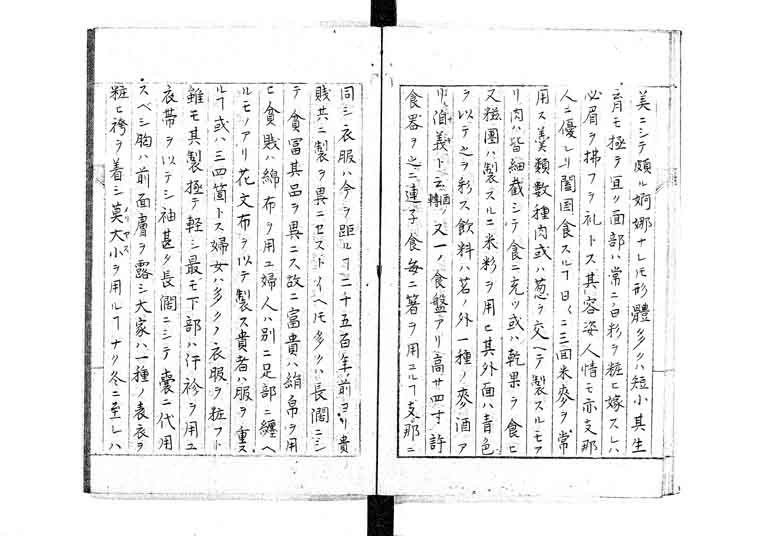 美ニシテ頗ル婀娜ナレ𪜈形體多クハ短小其生
育モ極テ宜シ面部ハ常ニ白彩ヲ粧ヒ嫁スレハ
必眉ヲ拂フヲ礼トス其容姿人情モ亦支那
人ニ優レリ闔国食スルヿ日ニ二三回米麥ヲ常
用ス羮類數種肉或ハ葱ヲ交ヘテ製スルモア
リ肉ハ皆細截シテ食ニ充ツ或ハ乾果ヲ食ヒ
又糍團ハ製スルニ米粉ヲ用ヒ其外面ハ青色
ヲ以テ之ヲ彩ス飲料ハ茗ノ外一種ノ麥酒ア
リ伯義ト云酒ノ轉又一ノ食盤アリ高サ四寸許
食器ヲ之ニ連子食毎ニ箸ヲ用ユルヿ支那ニ
同シ衣服ハ今ヲ距ルヿ二千五百年前ヨリ貴
賎共ニ製ヲ異ニセストイヘ𪜈多クハ長闊ニシ
テ貧冨其品ヲ異ニス故ニ富貴ハ絹帛ヲ用
ヒ貧賎ハ綿布ヲ用ユ婦人ハ別ニ足部ニ纏ヘ
ルモノアリ花文布ヲ以テ製ス貴者ハ服ヲ重ス
ルヿ或ハ三四箇トス婦女ハ多クノ衣服ヲ粧フト
雖モ其製極テ軽シ最モ下部ハ汗衫ヲ用ユ
衣帯ヲ以テシ袖甚タ長闊ニシテ嚢ニ代用
スヘシ胸ハ前面膚ヲ露シ大家ハ一種ノ表衣ヲ
粧ヒ袴ヲ着シ莫大小ヲ用ルヿナク冬ニ至レハ